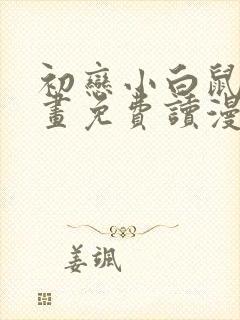 初戀小白鼠
畫免費讀漫
姜颯